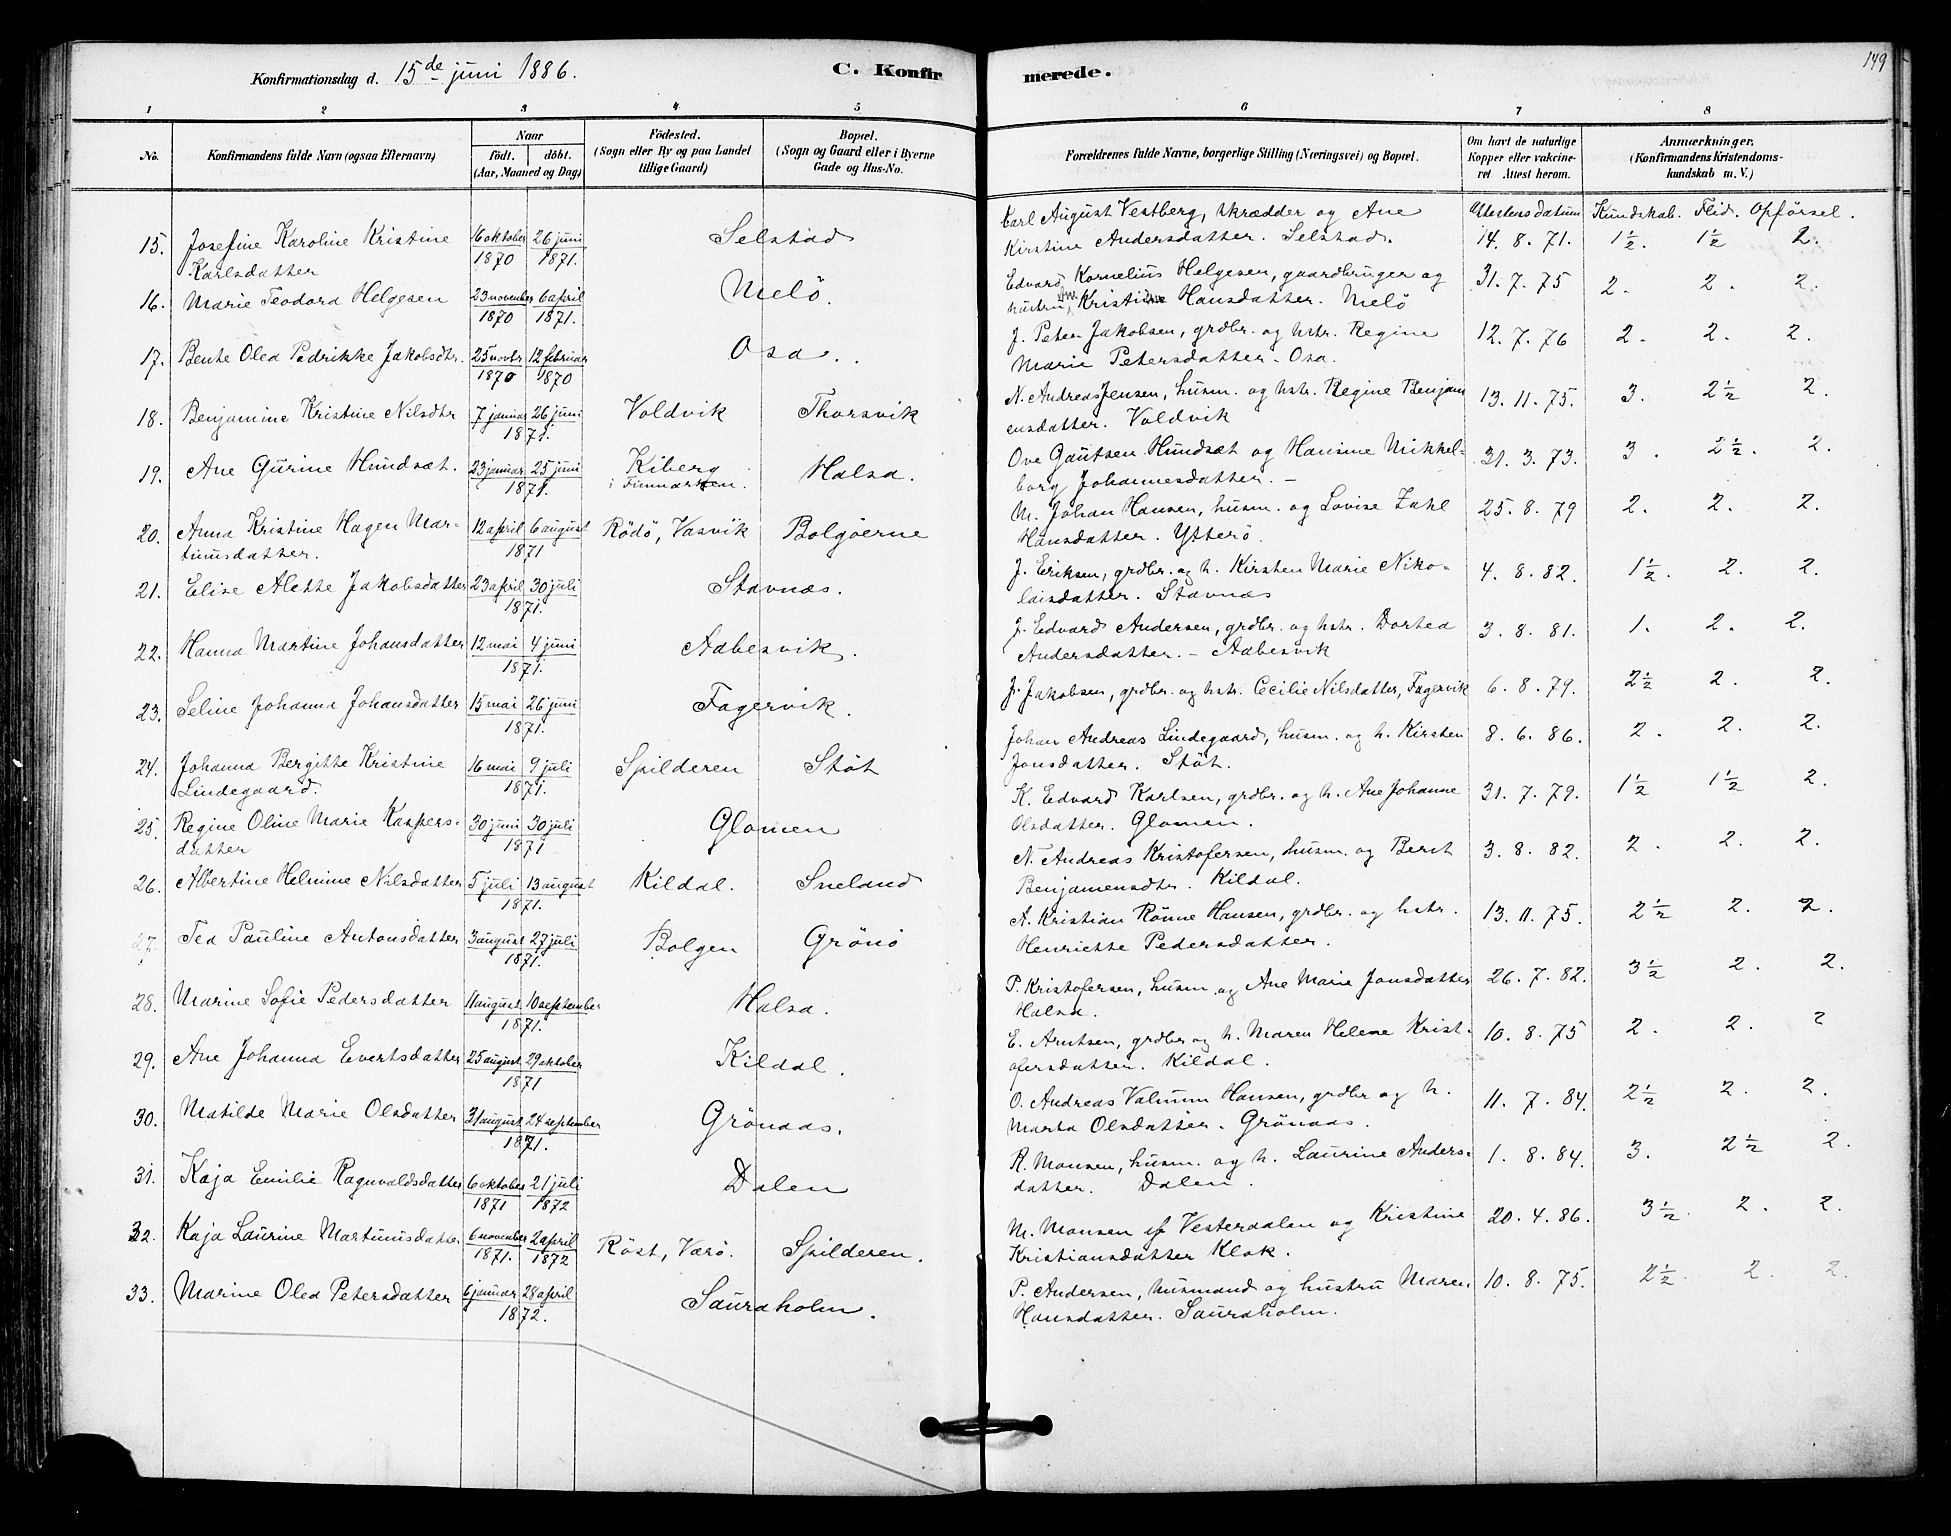 Konfirmationsdag d. 15de juni 1886.
C. Konfirmerede.
149
1 2 3 4 5 6 7 8
No.
Konfirmandens fulde Navn (ogsaa Efternavn)
Naar
födt. döbt.
(Aar, Maaned og Dag)
Födested.
(Sogn eller By og paa Landet
tillige Gaard)
Bopæl.
(Sogn og Gaard eller i Byerne
Gade og Hus-No.
Forældrenes fulde Navne, borgerlige Stilling (Næringsvei) og Bopæl.
Om havt de naturlige
Kopper eller vakcine-
ret Attest herom.
Anmærkninger,
(Konfirmandens Kristendoms-
kundskab m. V.)
Attestens datum Kundskab. Flid. Opførsel.
15. Josefine Karoline Kristine 16 oktober 26 juni Selstad Carl August Vestberg, skrædder og Ane
Karlsdatter 1870 1871. Kirstine Andersdatter. Selstad. 14. 8. 71. 1½. 1½ 2.
16. Marie Teodora Helgesen 23 november 6 april Melö. Edvard Kornelius Helgesen, gaardbruger og 31. 7. 75 2. 2. 2.
1870 1871. hustru Kristine Hansdatter. Melö
17. Bente Olea Pedrikke Jakobsdtr. 25 novbr 12 februar Osa. J. Peter Jakobsen, grdbr. og hstr. Regine 12. 7. 76 2. 2. 2.
1870 1870 Marie Petersdatter. Osa.
18. Benjamine Kristine Nilsdtr 7 januar 26 juni Voldvik Thorsvik N. Andreas Jensen, husm. og hstr. Regine Benjam 13. 11. 75. 3. 2½ 2.
1871. ensdatter. Voldvik
19. Ane Gurine Hundsæt. 23 januar 25 juni Kiberg Halsa. Ove Gautsen Hundsæt og Hansine Mikkel- 31. 3. 73. 3. 2½. 2.
1871. i Finmarken. borg Johannesdatter. —
20. Anna Kristine Hagen Mar- 12 april 6 august Rödö, Vasvik Bolgöerne M. Johan Hansen, husm. og Lovise Zahl 25. 8. 79 2. 2. 2.
tinusdatter. 1871 Hansdatter. Ytterö.
21. Elise Alette Jakobsdatter 23 april 30 juli Stavnæs. J. Eriksen, grdbr. og h. Kirsten Marie Niko- 4. 8. 82. 1½. 2. 2.
1871. laisdatter. Stavnæs
22. Hanna Martine Johansdatter 12 mai 4 juni Aabesvik. J. Edvard Andersen, grdbr. og hstr. Dortea 3. 8. 81. 1. 2. 2.
1871. Andersdatter. — Aabesvik
23. Seline Johanna Johansdatter 15 mai 26 juni Fagervik. J. Jakobsen, grdbr. og hstr. Cecilie Nilsdatter, Fagervik 6. 8. 79. 2½ 2. 2.
1871.
24. Johanna Bergitte Kristine 16 mai 9 juli Spilderen Stöt Johan Andreas Lindegaard, husm. og h. Kirsten 8. 6. 86. 2. 2. 2.
Lindegaard. 1871. Jonsdatter. Stöt.
25. Regine Oline Marie Kaspers- 30 juni 30 juli Glomen K. Edvard Karlsen, grdbr. og h. Ane Johanne 31. 7. 79. 1½ 1½ 2.
datter 1871 Olsdatter. Glomen.
26. Albertine Helmine Nilsdatter 5 juli 13 august Kildal. Sneland N. Andreas Kristofersen, husm. og Berit 3. 8. 82. 2. 2. 2.
1871. Benjamensdtr. Kildal.
27. Tea Pauline Antonsdatter 3 august 27 juli Bolgen Grönö A. Kristian Rönne Hansen, grdbr. og hstr. 13. 11. 75. 2½ 2. 2.
1871. Henriette Pedersdatter.
28. Marine Sofie Pedersdatter 11 august 10 september Halsa. P. Kristofersen, husm. og Ane Marie Jonsdatter 26. 7. 82. 3½ 2. 2.
1871. Halsa.
29. Ane Johanna Evertsdatter 25 august 29 oktober Kildal. E. Arntsen, grdbr og h. Maren Helene Krist- 10. 8. 75 2. 2. 2
1871 ofersdatter. Kildal.
30. Matilde Marie Olsdatter 31 august 24 september Grönaas. O. Andreas Valnum Hansen, grdbr og h. 11. 7. 84. 2½ 2. 2.
1871. Marta Olsdatter. Grönaas.
31. Kaja Emilie Ragnvaldsdatter 6 oktober 21 juli Dalen R. Monsen, husm. og h. Laurine Anders- 1. 8. 84. 3. 2½ 2.
1871 1872 datter. Dalen.
32. Kaja Laurine Martinusdatter 6 november 2 april Röst, Værö. Spilderen. M. Monsen af Vesterdalen og Kristine 20. 4. 86. 3½. 2. 2.
1871. 1872 Kristiansdatter Klok.
33. Marine Olea Petersdatter 6 januar 28 april Sauraholm. P. Andersen, husmand og hustru Maren 10. 8. 75. 2½. 2. 2.
1872. Hansdatter. Sauraholm.